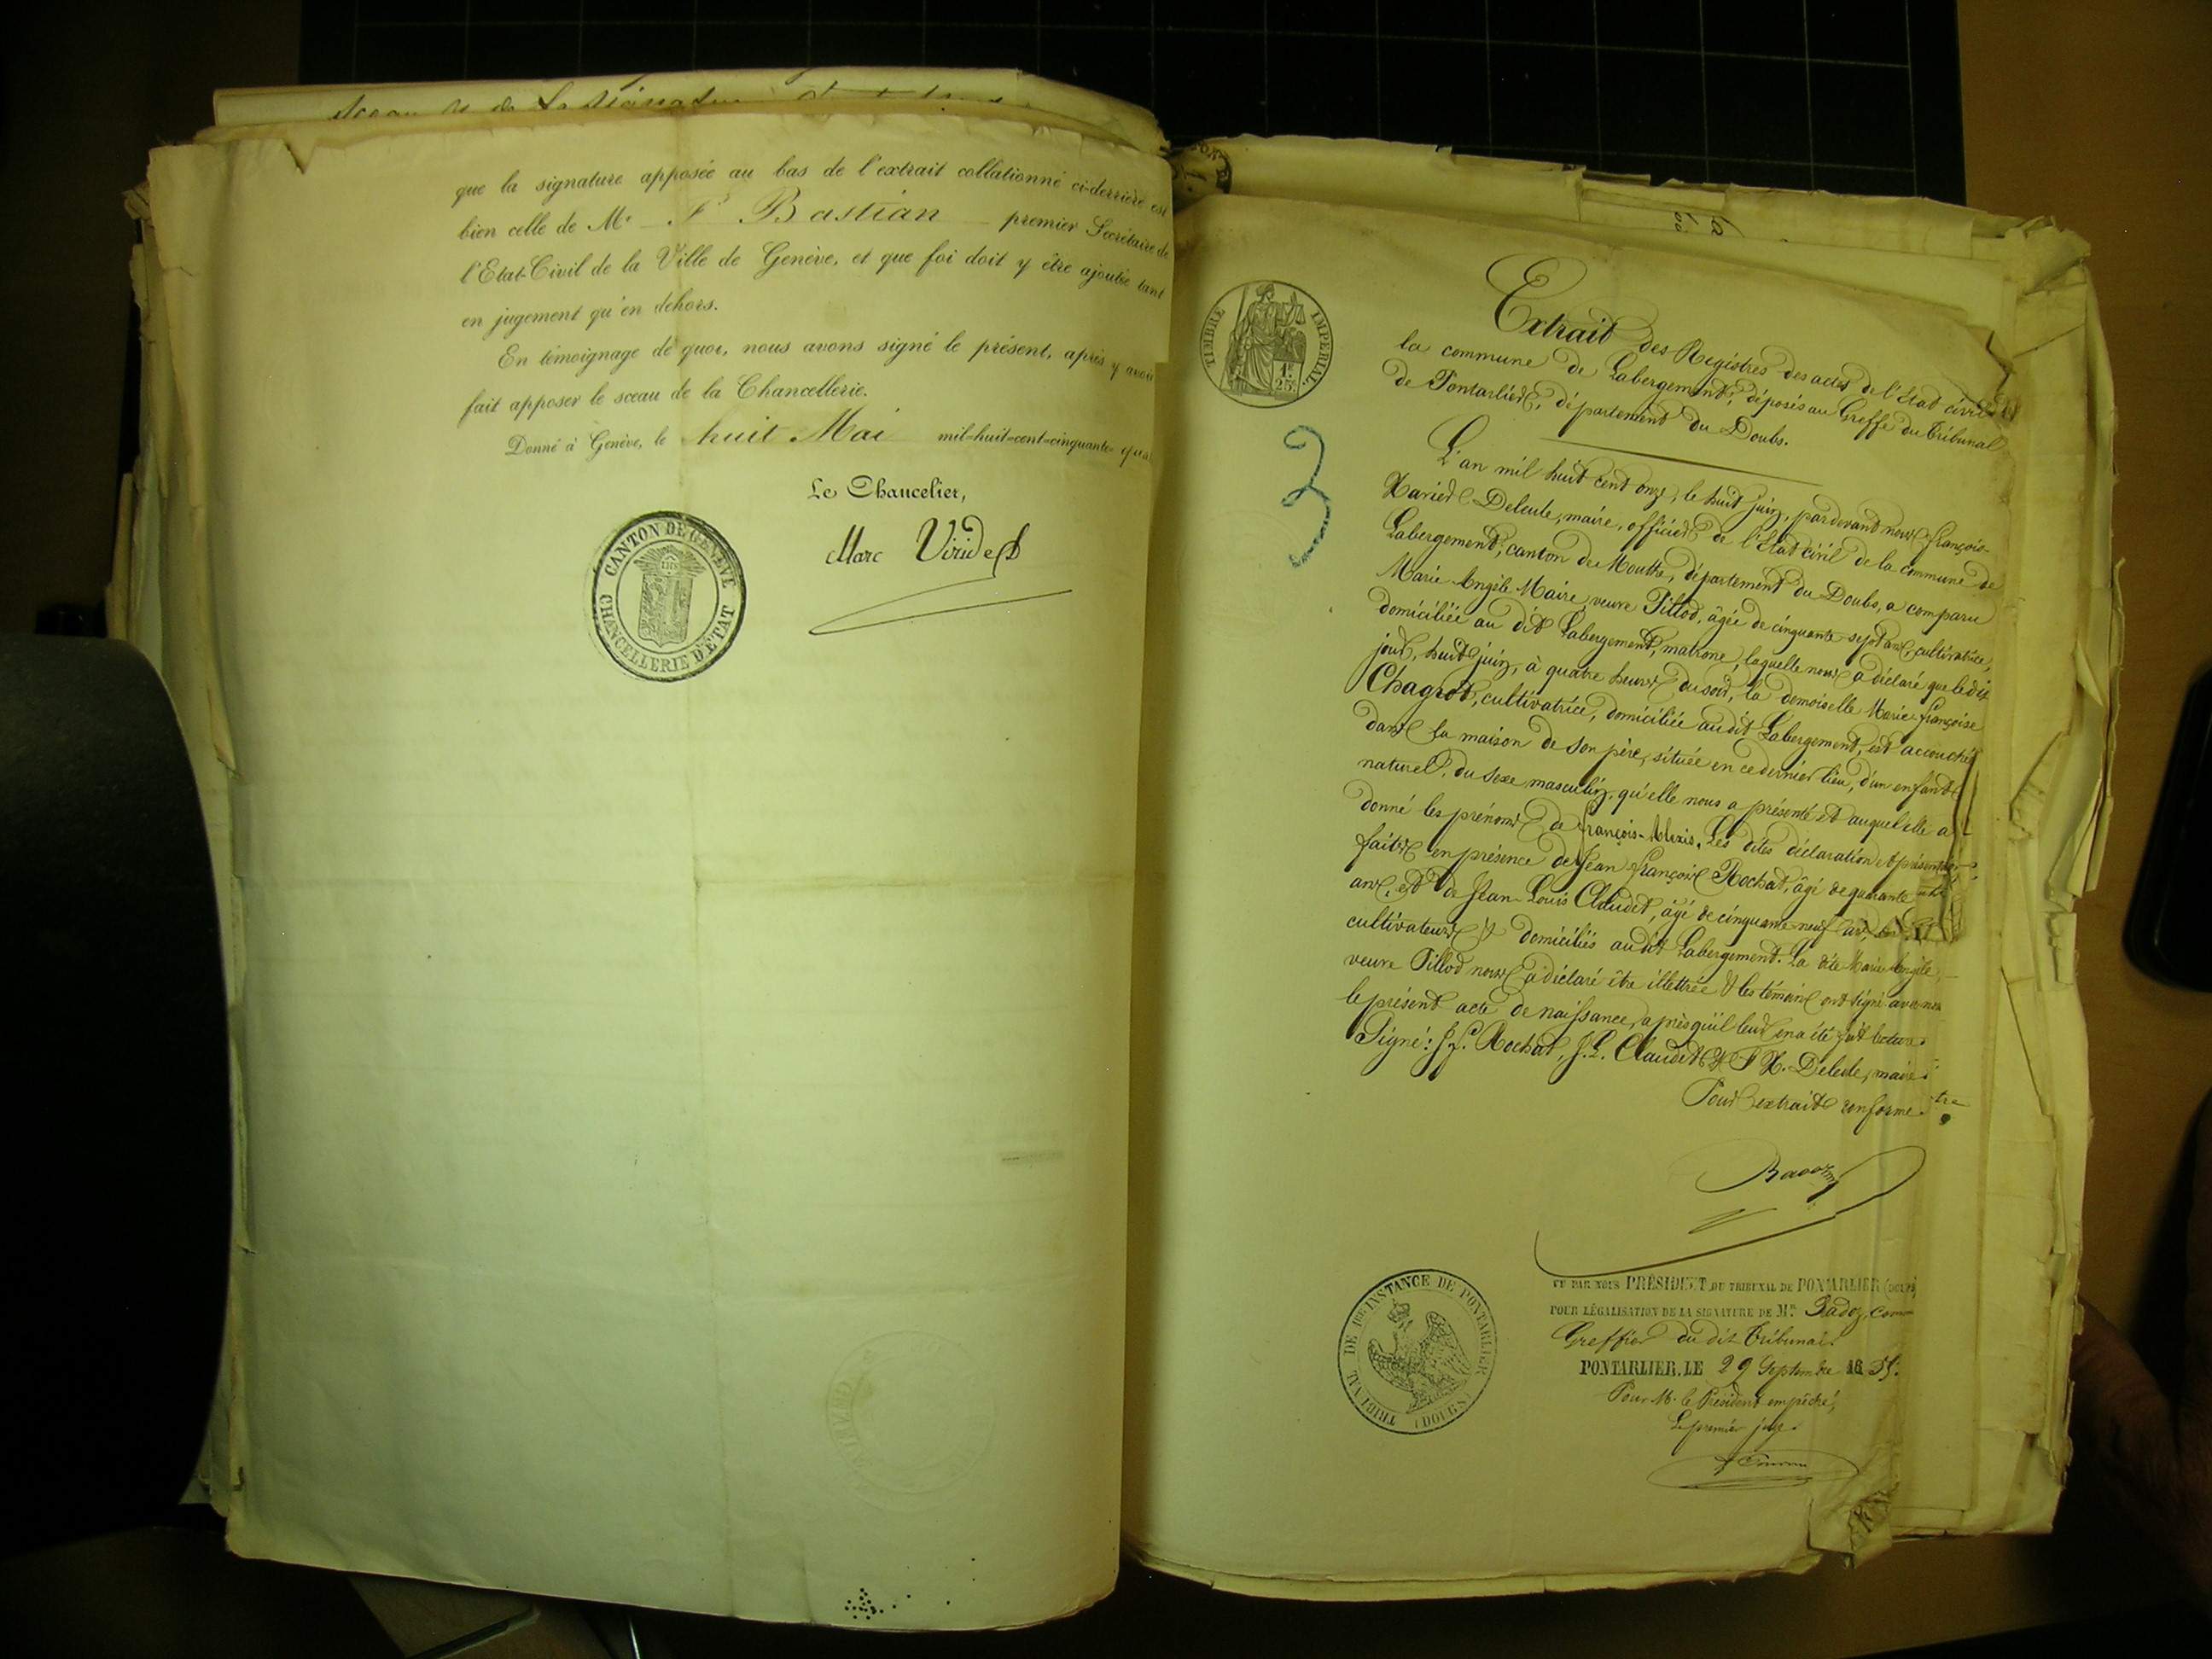 que la signature apposée au bas de l'extrait collationné ci-derrière est
bien celle de Mr F Bastian premier Secrétaire de
l'Etat-Civil de la Ville de Genève, et que foi doit y être ajoutée tant
en jugement qu'en dehors.
En témoignage de quoi, nous avons signé le présent, après y avoir
fait apposer le sceau de la Chancellerie.
Donné à Genève, le huit Mai mil-huit-cent-cinquante-
Le Chancelier,
Marc Viridet
CANTON DE GENÈVE
CHANCELLERIE D'ÉTAT
TIMBRE IMPÉRIAL
1F.
25C.
3
Extrait des Registres des actes de l'État civil de
la commune de Labergement, déposés au Greffe du Tribunal
de Pontarlier, département du Doubs.
L'an mil huit cent onze, le huit juin, pardevant nous françois-
Xavier Deleule, maire, officier de l'État civil de la commune de
Labergement, canton de Mouthe, département du Doubs, a comparu
Marie Angèle Maire, veuve Pillod, âgée de cinquante-sept ans, cultivatrice,
domiciliée au dit Labergement, matrone, laquelle nous a déclaré que ledit
jour, huit juin, à quatre heures du soir, la demoiselle Marie françoise
Chagrot, cultivatrice, domiciliée audit Labergement, est accouchée
dans la maison de son père, située en ce dernier lieu, d'un enfant
naturel, du sexe masculin, qu'elle nous a présenté et auquel elle a
donné les prénoms de françois-Alexis. Les dites déclaration et présentation
faites en présence de Jean françois Rochat, âgé de quarante
ans, et de Jean-Louis Claudet, âgé de cinquante-neuf ans,
cultivateurs & domiciliés audit Labergement. La dite Marie Angèle,
veuve Pillod nous a déclaré être illettrée & les témoins ont signé avec nous
le présent acte de naissance, après qu'il leur en a été fait lecture.
Signé: J.f. Rochat, J.L. Claudet & F X. Deleule, maire.
Pour extrait conforme.
VU PAR NOUS PRÉSIDENT DU TRIBUNAL DE PONTARLIER (DOUBS)
POUR LÉGALISATION DE LA SIGNATURE DE MR. Badoz, Comm
Greffier du dit Tribunal.
PONTARLIER, LE 29 Septembre 1855.
Pour M. le Président empêché,
Le premier juge.
TRIBUNAL DE 1RE INSTANCE DE PONTARLIER
(DOUBS)